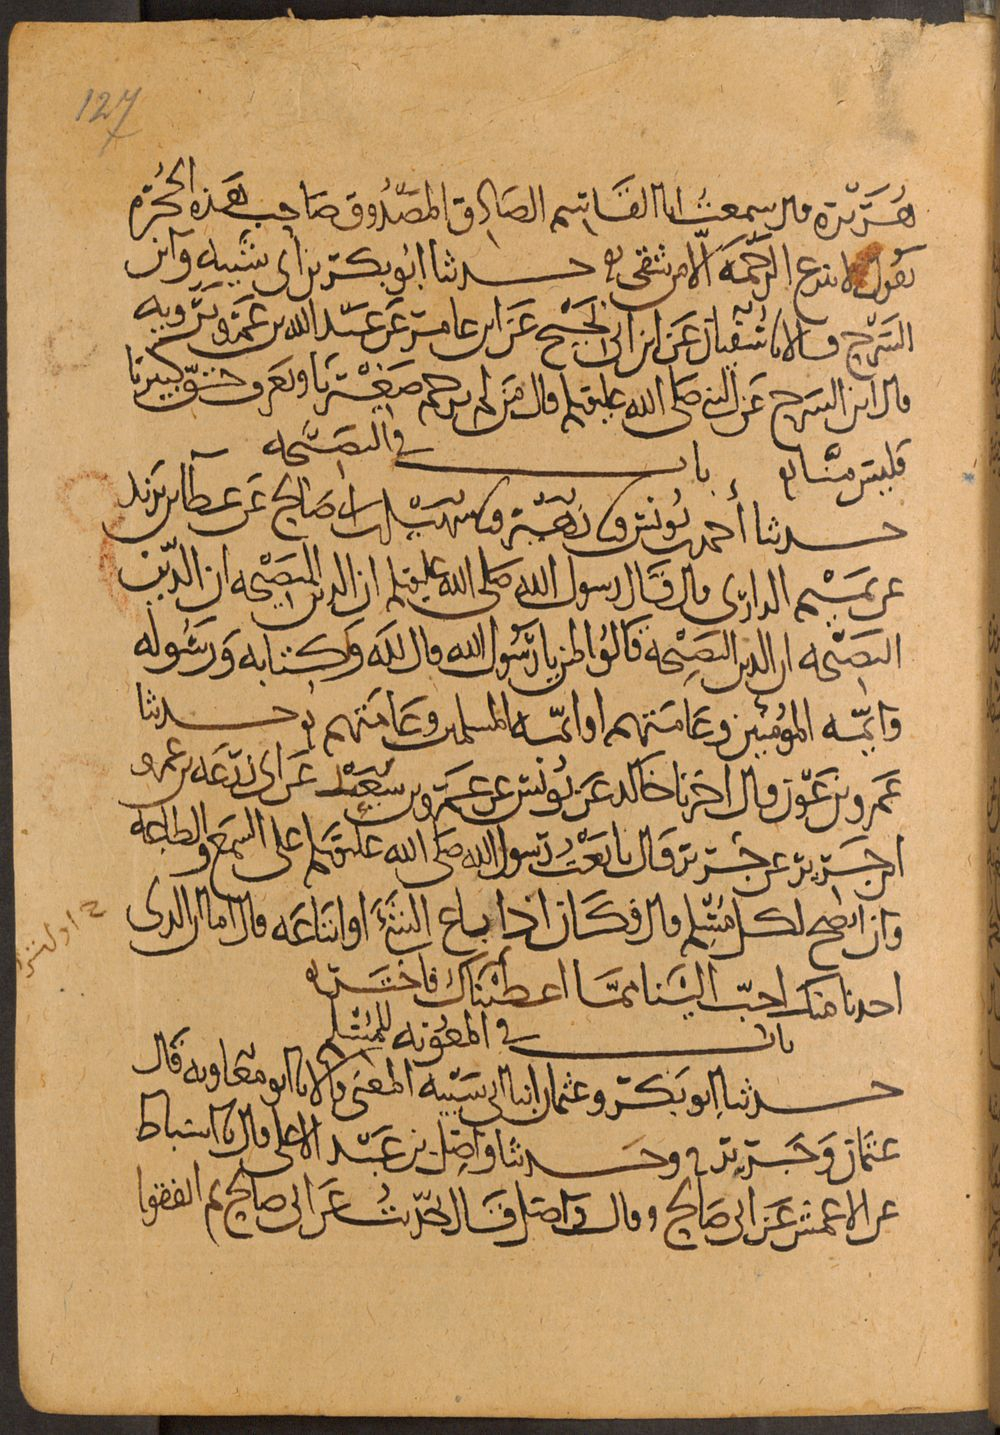 127
هريرة قال سمعت ابا القاسم الصادق المصدوق صاحب هذه الحجرة
يقول لا تنزع الرحمة الا من شقي حدثنا ابو بكر بن ابي شيبة وابن
السرح قالا نا سفيان عن ابن ابي نجيح عن ابن عامر عن عبد الله بن عمرو يرويه
قال ابن السرح عن النبي صلى الله عليه وسلم قال من لم يرحم صغيرنا ويعرف حق كبيرنا
فليس منا باب في النصيحة
حدثنا أحمد بن يونس نا زهير نا سهيل بن ابي صالح عن عطاء بن يزيد
عن تميم الداري قال قال رسول الله صلى الله عليه وسلم ان الدين النصيحه ان الدين
النصيحه ان الدين النصيحه قالوا لمن يا رسول الله قال لله وكتابه ورسوله
وايمة المؤمنين وعامتهم او ايمة المسلمين وعامتهم حدثنا
عمرو بن عون قال اخبرنا خالد عن يونس عن عمرو بن سعيد عن ابي زرعة بن عمرو
ابن جرير عن جرير قال بايعت رسول الله صلى الله عليه وسلم على السمع والطاعة
وان انصح لكل مسلم قال فكان اذا باع الشيء او ابتاعه قال اما ان الذي
اخذنا منك احب الينا مما اعطيناك فاختر
باب في المعونة للمسلم
حدثنا ابو بكر وعثمان ابنا ابي شيبة المعنى قالا نا ابو معاوية قال
عثمان وجرير ح وحدثنا واصل بن عبد الاعلى قال نا اسباط
عن الاعمش عن ابي صالح وقال واصل قال حدثت عن ابي صالح ثم اتفقوا